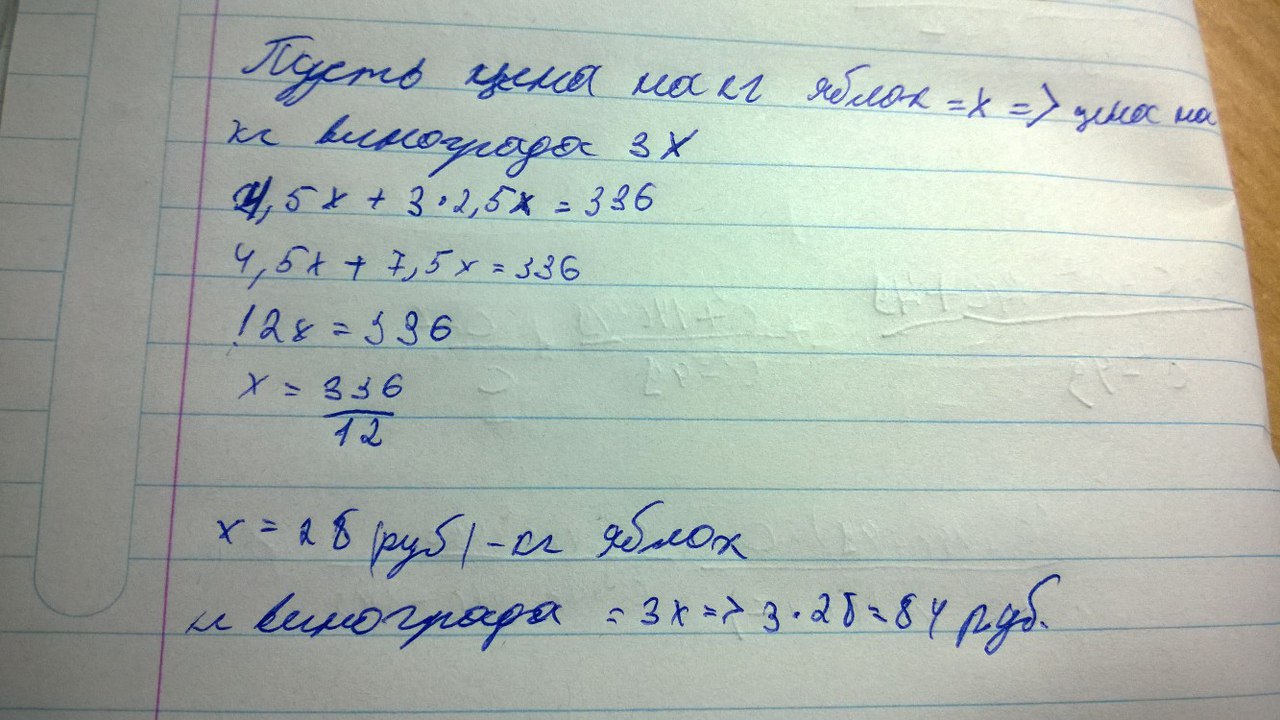 Пусть цена на кг яблок = x => цена на
кг винограда 3x
4,5x + 3·2,5x = 336
4,5x + 7,5x = 336
12x = 336
x = 336/12
x = 28 (руб) - кг яблок
кг винограда = 3x => 3·28 = 84 руб.